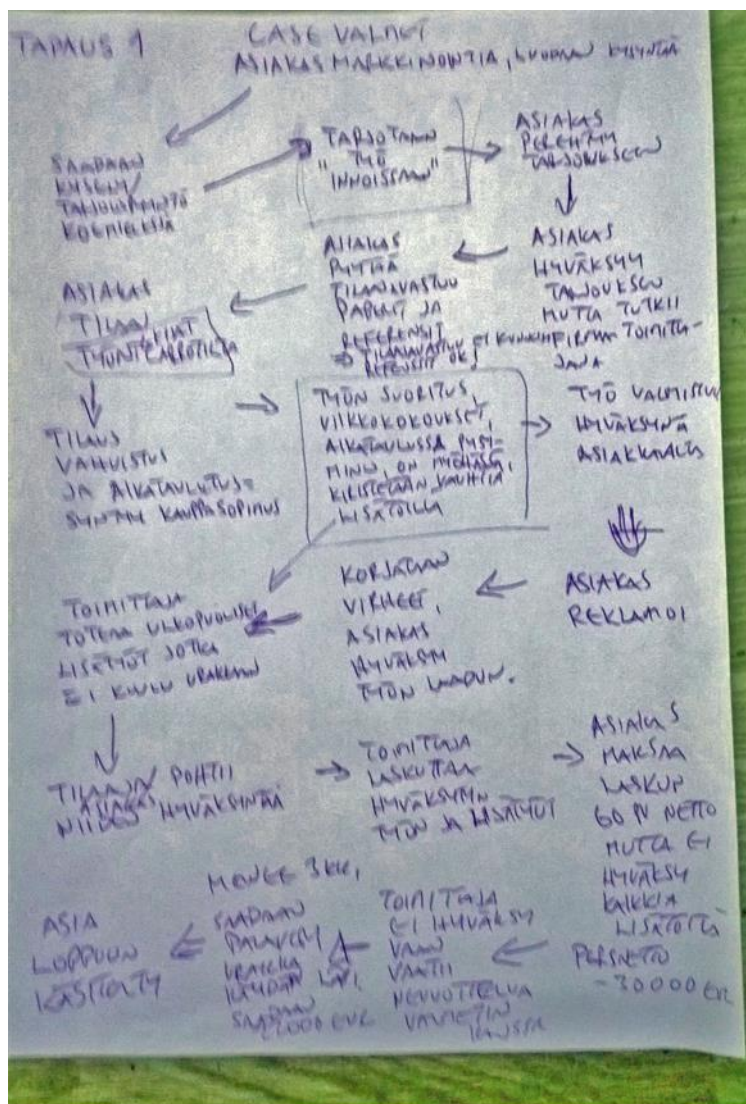 TAPAUS 1
CASE VALMET
ASIAKAS MARKKINOINTIA, LUODAAN KYSYNTÄÄ
SAADAAN
KYSELY/
TARJOUSPYYNTÖ
TARJOTAAN
"TYÖ
INNOISSAAN"
ASIAKAS
PEREHTYY
TARJOUKSEEN
ASIAKAS
HYVÄKSYY
TARJOUKSEN
MUTTA TUTKII
TOIMITTA-
JANA
ASIAKAS
PYYTÄÄ
TILAAJAVASTUU
PAPERIT JA
REFERENSSIT
TILAAJAVASTUU
OK
ASIAKAS
TILAA
TILAUS
VAHVISTUS
JA AIKATAULUTUS=
SYNTYY KAUPPASOPIMUS
TYÖN SUORITUS,
VIIKKOKOKOUKSET,
AIKATAULUSSA PYSY-
MINEN, ON MYÖHÄSSÄ,
KIRISTETÄÄN VAUHTIA
LISÄTÖILLÄ
TYÖ VALMISTUU
HYVÄKSYNTÄ
ASIAKKAALTA
ASIAKAS
REKLAMOI
KORJATAAN
VIRHEET,
ASIAKAS
HYVÄKSYY
TYÖN LAADUN.
TOIMITTAJA
TOTEAA ULKOPUOLISET
LISÄTYÖT JOTKA
EI KUULU URAKKAAN
TILAAJA/ POHTII
ASIAKAS
NIIDEN HYVÄKSYNTÄÄ
TOIMITTAJA
LASKUTTAA
HYVÄKSYTYN
TYÖN JA LISÄTYÖT
ASIAKAS
MAKSAA
LASKUN
60 PV NETTO
MUTTA EI
HYVÄKSY
KAIKKIA
LISÄTÖITÄ
PERSNETTO
-30000 EUR
TOIMITTAJA
EI HYVÄKSY
VAAN
VAATII
NEUVOTTELUA
VALMETIN
KANSSA
MENEE 3KK,
SAADAAN
PALAVERI
URAKKA
KÄYDÄÄN LÄPI,
SAADAAN
ASIA
LOPPUUN
KÄSITELTY